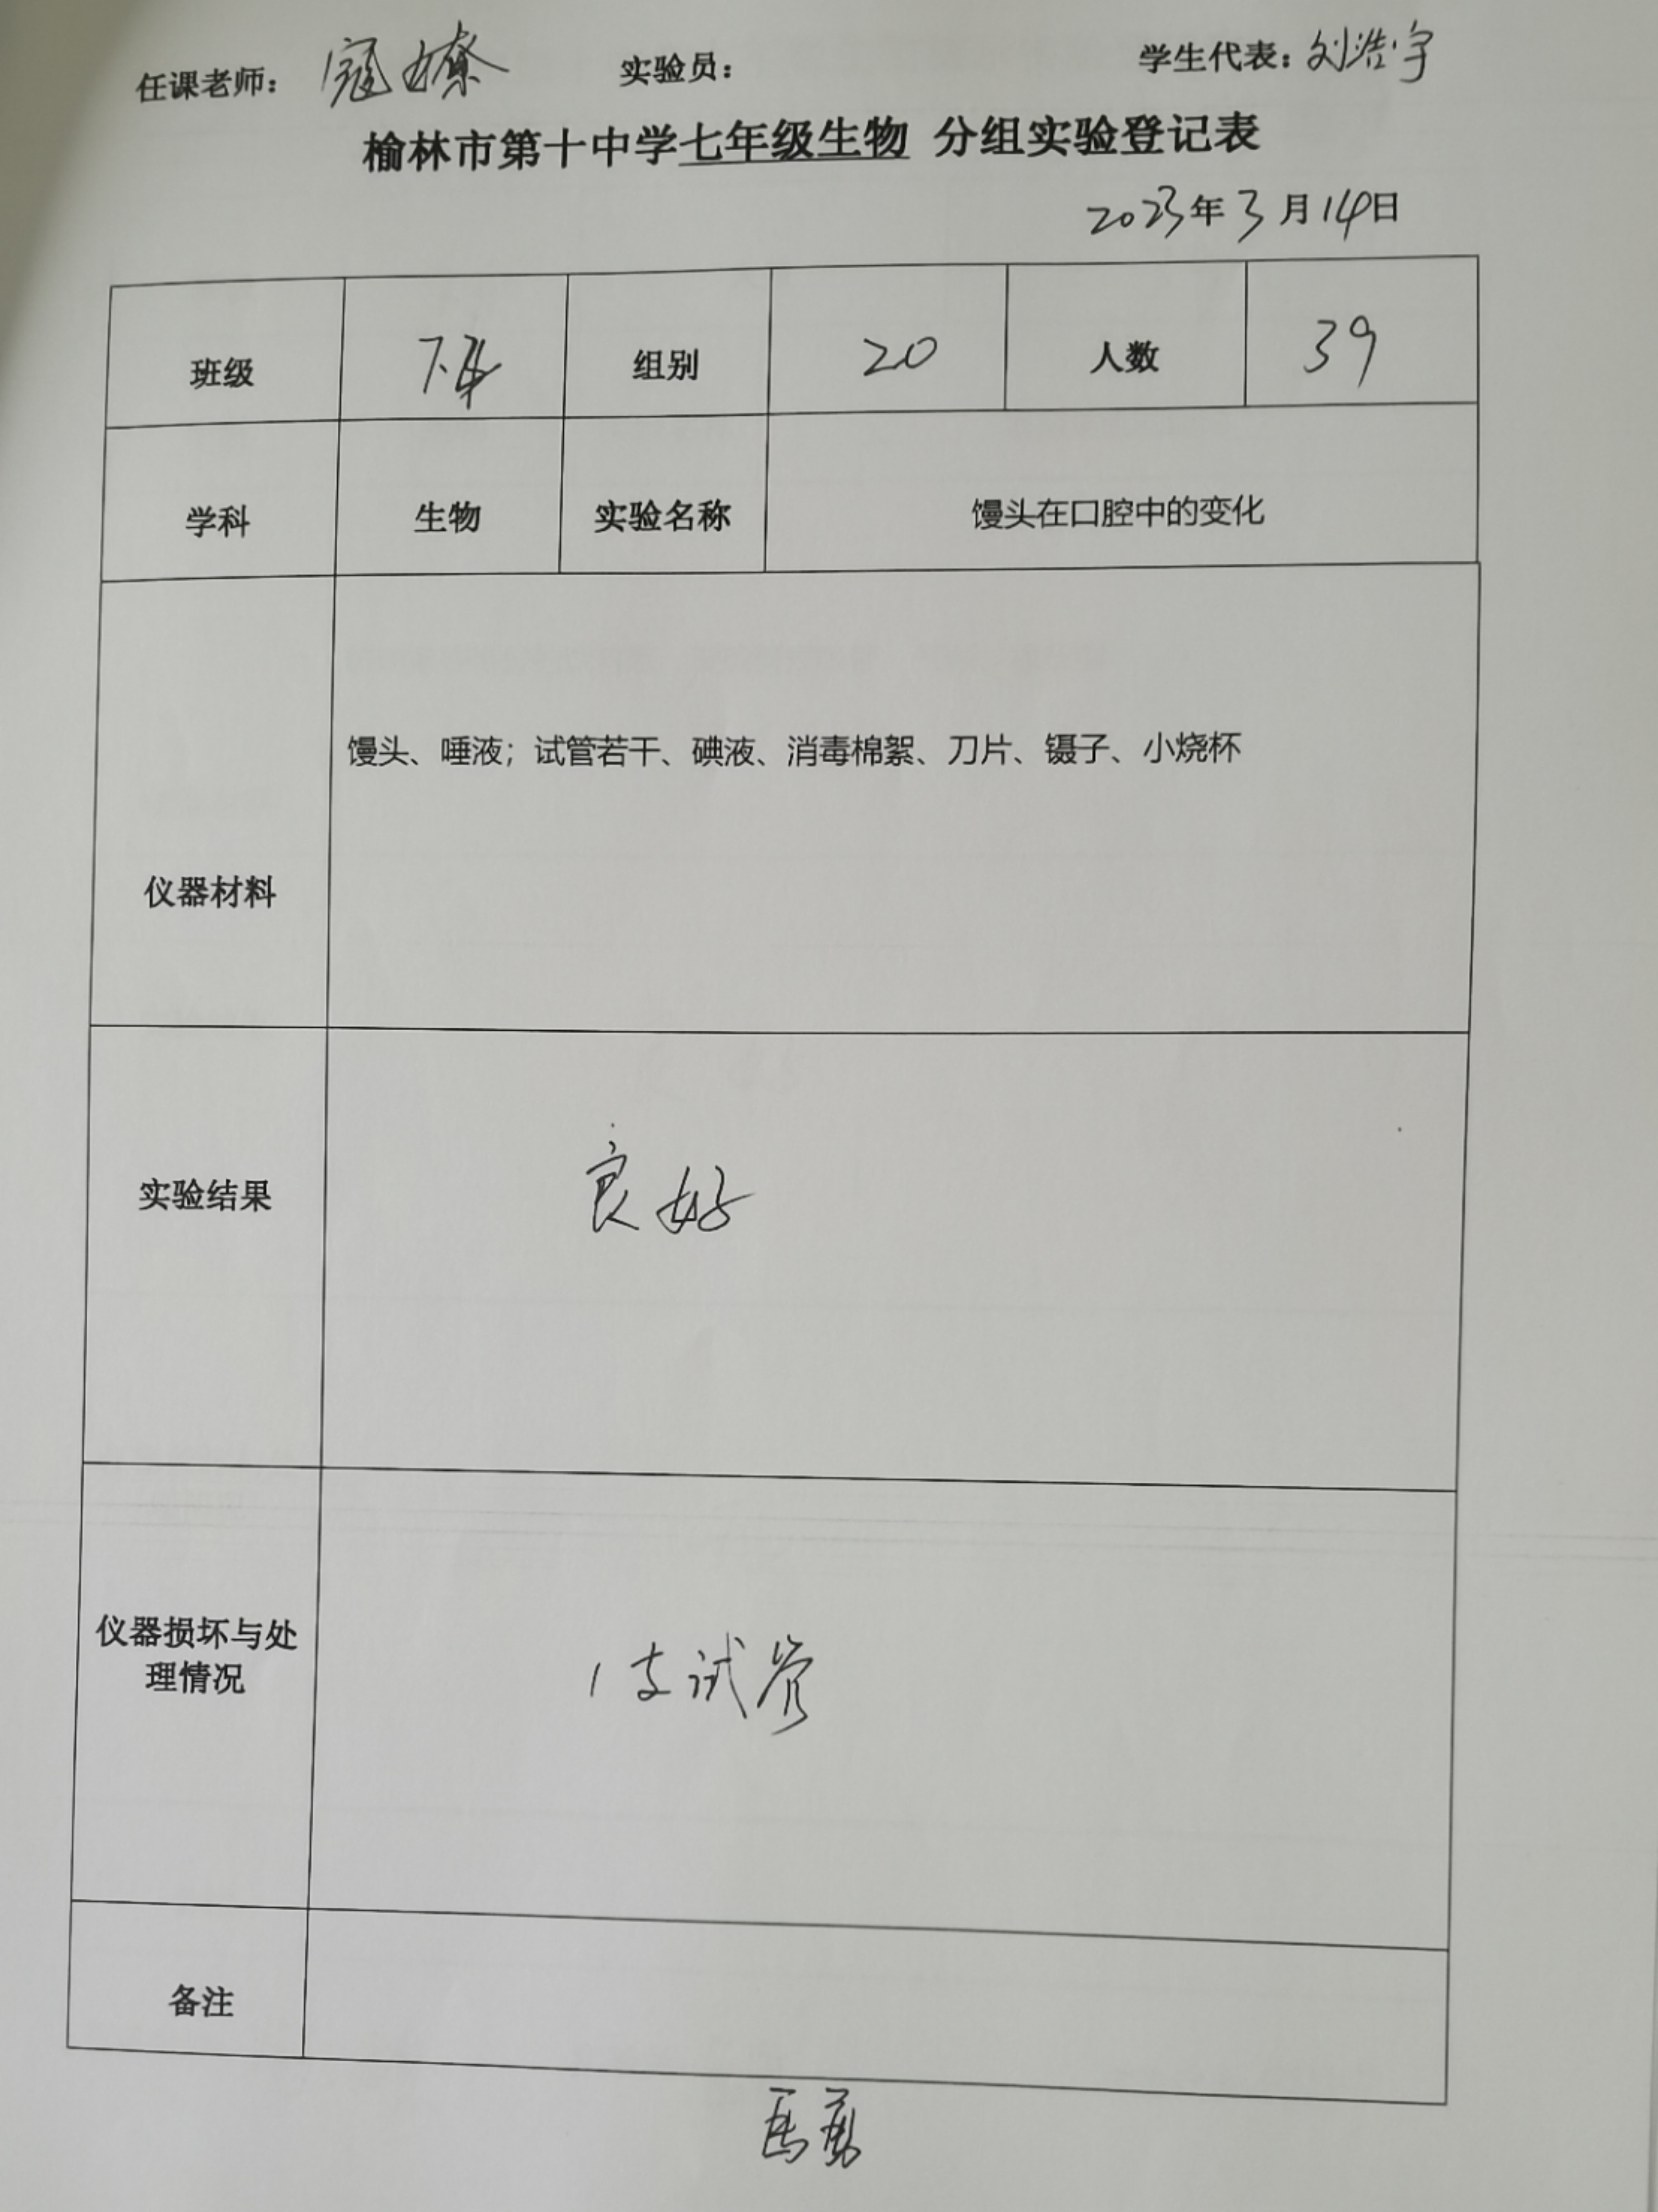 任课老师： 寇 实验员： 学生代表：刘浩宇
榆林市第十中学七年级生物 分组实验登记表
2023年3月14日
班级 7.4 组别 20 人数 39
学科 生物 实验名称 馒头在口腔中的变化
馒头、唾液；试管若干、碘液、消毒棉絮、刀片、镊子、小烧杯
仪器材料
实验结果 良好
仪器损坏与处
理情况
1支试管
备注